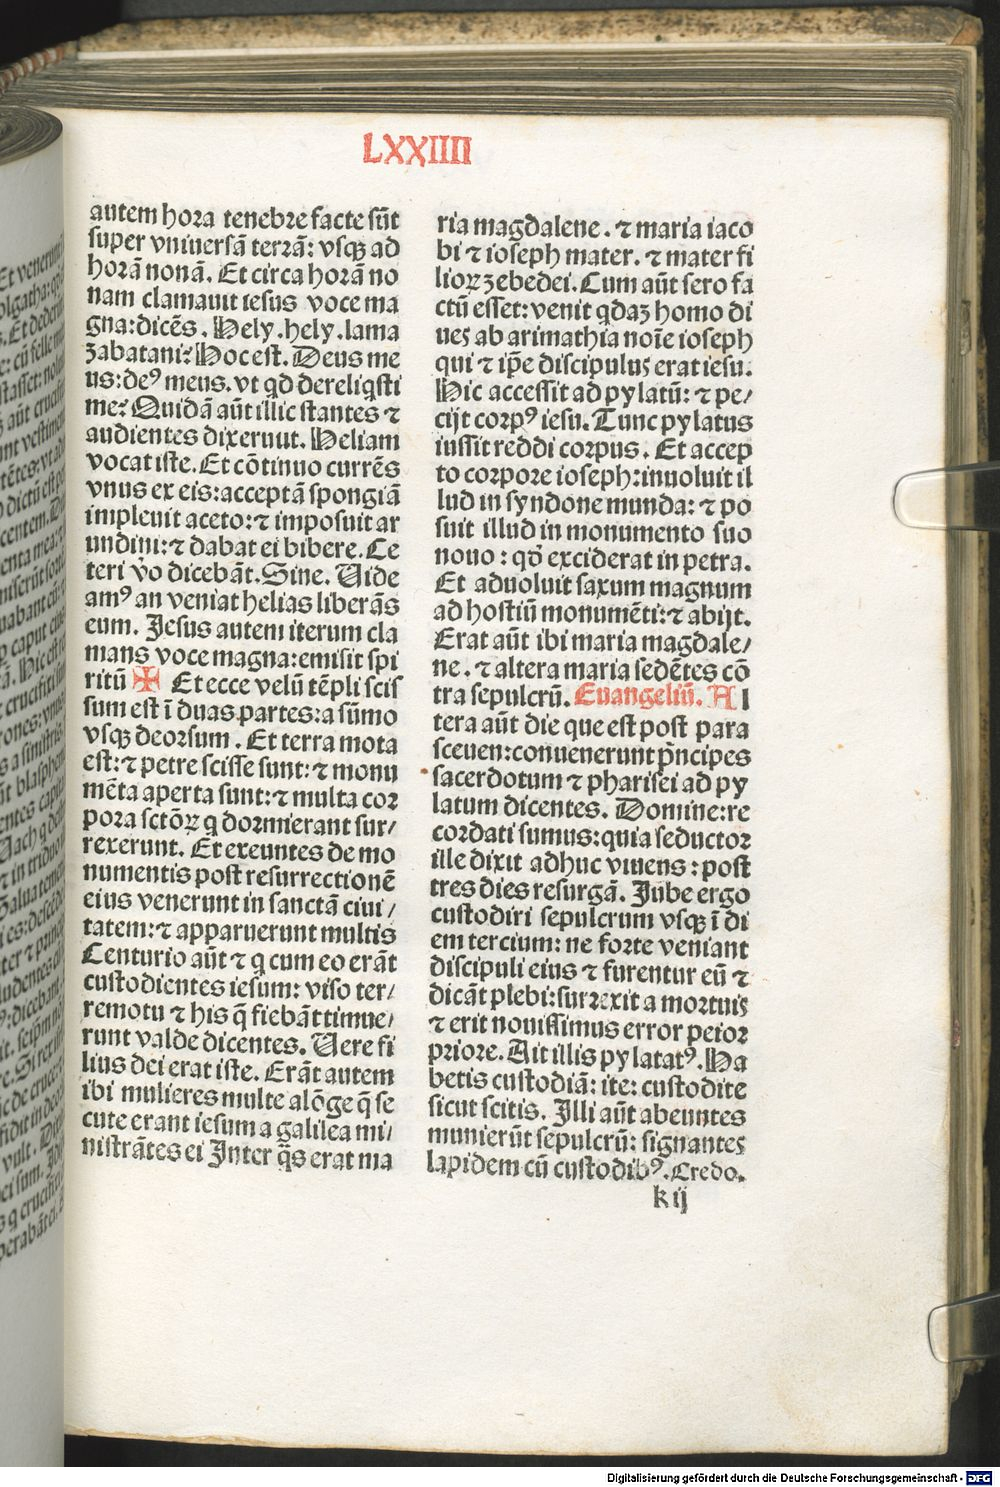 LXXIIII
autem hora tenebre facte sūt
super vniuersā terrā: vsqꝫ ad
horā nonā. Et circa horā no
nam clamauit iesus voce ma
gna: dicēs. Hely. hely. lama
zabatani? Hoc est. Deus me
us: deꝰ meus. vt qd dereliqsti
me? Quidā aūt illic stantes ⁊
audientes dixerunt. Heliam
vocat iste. Et cōtinuo currēs
vnus ex eis: acceptā spongiā
impleuit aceto: ⁊ imposuit ar
undini: ⁊ dabat ei bibere. Ce
teri v̊o dicebāt. Sine. Uide
amꝰ an veniat helias liberās
eum. Jesus autem iterum cla
mans voce magna: emisit spi
ritū ✠ Et ecce velū tēpli scis
sum est ī duas partes: a sūmo
vsqꝫ deorsum. Et terra mota
est: ⁊ petre scisse sunt: ⁊ monu
mēta aperta sunt: ⁊ multa cor
pora sctōꝝ q dormierant sur/
rexerunt. Et exeuntes de mo
numentis post resurrectionē
eius venerunt in sanctā ciui/
tatem: ⁊ apparuerunt multis
Centurio aūt ⁊ q cum eo erāt
custodientes iesum: viso ter/
remotu ⁊ his q̄ fiebāt timue/
runt valde dicentes. Uere fi
lius dei erat iste. Erāt autem
ibi mulieres multe alōge q̄ se
cute erant iesum a galilea mi/
nistrātes ei Inter q̄s erat ma
ria magdalene. ⁊ maria iaco
bi ⁊ ioseph mater. ⁊ mater fi
lioꝝ zebedei. Cum aūt sero fa
ctū esset: venit qdaꝫ homo di
ues ab arimathia noīe ioseph
qui ⁊ ip̄e discipulus erat iesu.
Hic accessit ad pylatū: ⁊ pe/
cijt corpꝰ iesu. Tunc pylatus
iussit reddi corpus. Et accep
to corpore ioseph: inuoluit il
lud in syndone munda: ⁊ po
suit illud in monumento suo
nouo: qd̄ exciderat in petra.
Et aduoluit saxum magnum
ad hostiū monumēti: ⁊ abijt.
Erat aūt ibi maria magdale/
ne. ⁊ altera maria sedētes cō
tra sepulcrū. Euangeliū. Al
tera aūt die que est post para
sceuen: conuenerunt p̄ncipes
sacerdotum ⁊ pharisei ad py
latum dicentes. Domine: re
cordati sumus: quia seductor
ille dixit adhuc viuens: post
tres dies resurgā. Jube ergo
custodiri sepulcrum vsqꝫ ī di
em tercium: ne forte veniant
discipuli eius ⁊ furentur eū ⁊
dicāt plebi: surrexit a mortuis
⁊ erit nouissimus error peior
priore. Ait illis pylatatꝰ. Ha
betis custodiā: ite: custodite
sicut scitis. Illi aūt abeuntes
munierūt sepulcrū: signantes
lapidem cū custodibꝰ. Credo.
k ij
Digitalisierung gefördert durch die Deutsche Forschungsgemeinschaft - DFG